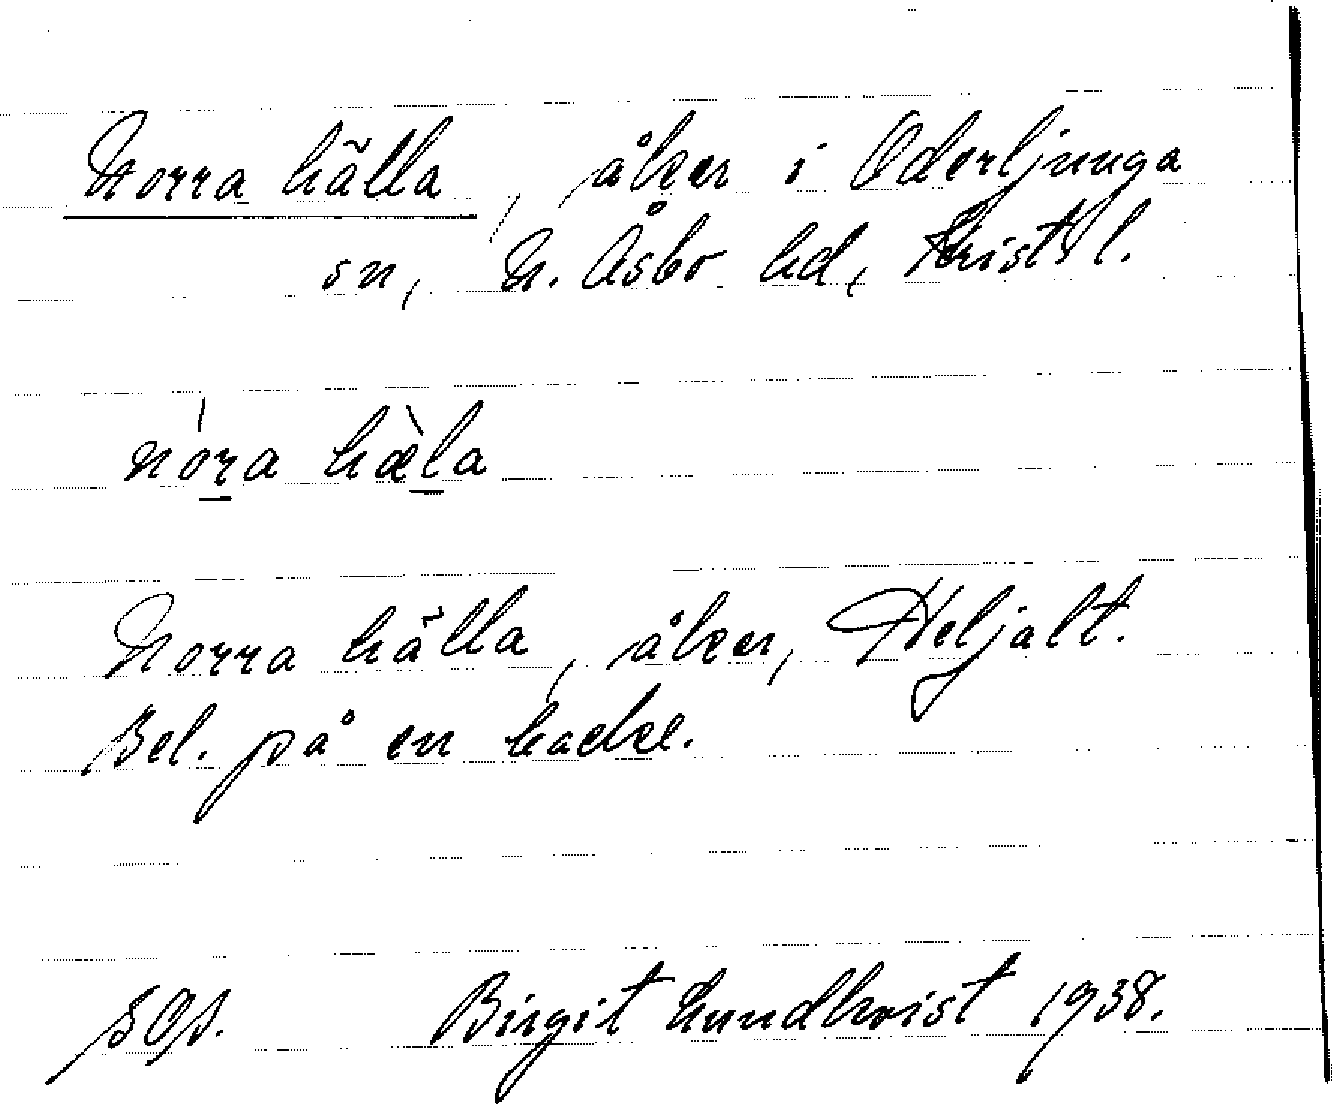 Norra hälla, åker i Oderljunga
sn, N. Åsbo hd, Krist. l.
nór̲a hæ̀l̲a
Norra hälla, åker, Heljalt.
Bel. på en backe.
SOS. Birgit Lundkvist 1938.